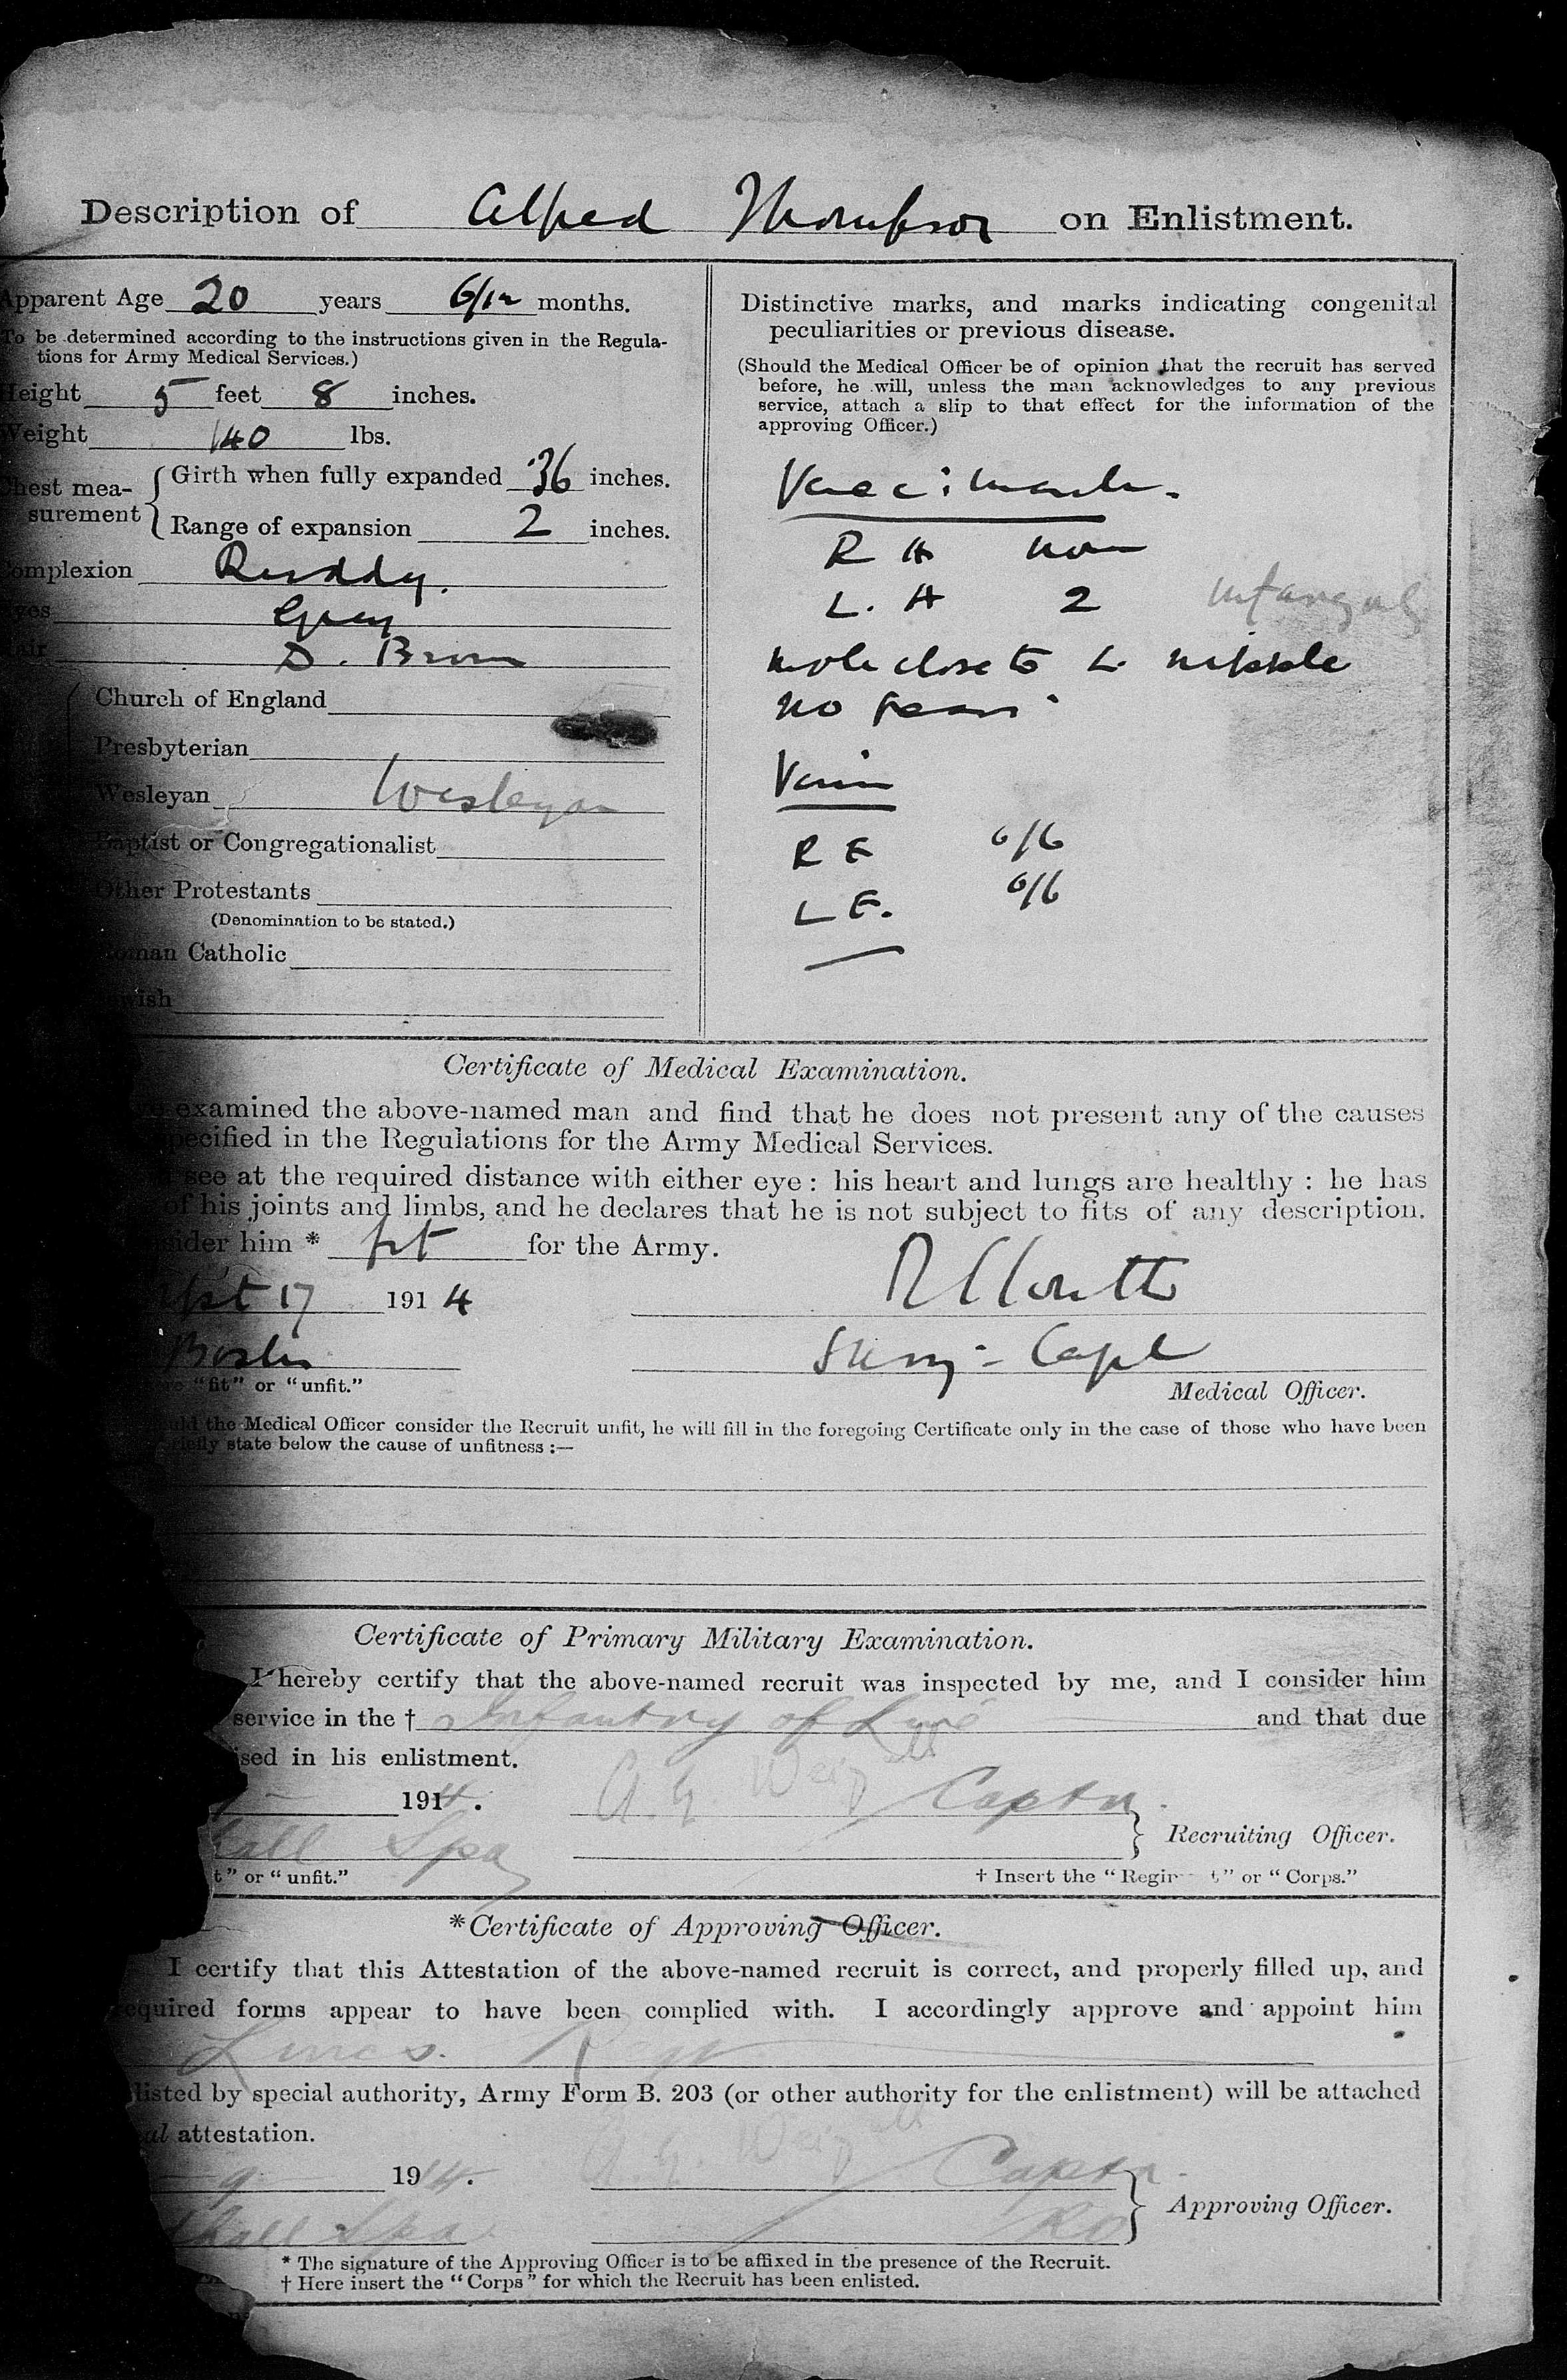 Description of Alfred Thompson on Enlistment.
Apparent Age 20 years 6/12 months.
To be determined according to the instructions given in the Regula-
tions for Army Medical Services.)
Height 5 feet 8 inches.
Weight 140 lbs.
Chest mea-
surement
Girth when fully expanded 36 inches.
Range of expansion 2 inches.
Complexion Ruddy.
Eyes Grey
Hair D. Brown
Church of England
Presbyterian
Wesleyan Wesleyan
Baptist or Congregationalist
Other Protestants
(Denomination to be stated.)
Roman Catholic
Jewish
Distinctive marks, and marks indicating congenital
peculiarities or previous disease.
(Should the Medical Officer be of opinion that the recruit has served
before, he will, unless the man acknowledges to any previous
service, attach a slip to that effect for the information of the
approving Officer.)
Vacc: marks.
R A
L. A 2 infancy
mole close to L. nipple
no
Vision
R E 6/6
L E. 6/6
Certificate of Medical Examination.
examined the above-named man and find that he does not present any of the causes
specified in the Regulations for the Army Medical Services.
see at the required distance with either eye: his heart and lungs are healthy: he has
of his joints and limbs, and he declares that he is not subject to fits of any description.
him * fit for the Army.
Sept 17 1914
Boston
"fit" or "unfit."
Surg- Capt
Medical Officer.
the Medical Officer consider the Recruit unfit, he will fill in the foregoing Certificate only in the case of those who have been
briefly state below the cause of unfitness:—
Certificate of Primary Military Examination.
I hereby certify that the above-named recruit was inspected by me, and I consider him
service in the † Infantry of Line and that due
in his enlistment.
1914.
A. G. Weigall Captn.
hall Spa
Recruiting Officer.
" or "unfit."
† Insert the " " or "Corps."
*Certificate of Approving Officer.
I certify that this Attestation of the above-named recruit is correct, and properly filled up, and
required forms appear to have been complied with. I accordingly approve and appoint him
Lincs. Regt
listed by special authority, Army Form B. 203 (or other authority for the enlistment) will be attached
attestation.
9 1914.
A. G. Weigall Captn.
RO
hall Spa
Approving Officer.
* The signature of the Approving Officer is to be affixed in the presence of the Recruit.
† Here insert the "Corps" for which the Recruit has been enlisted.